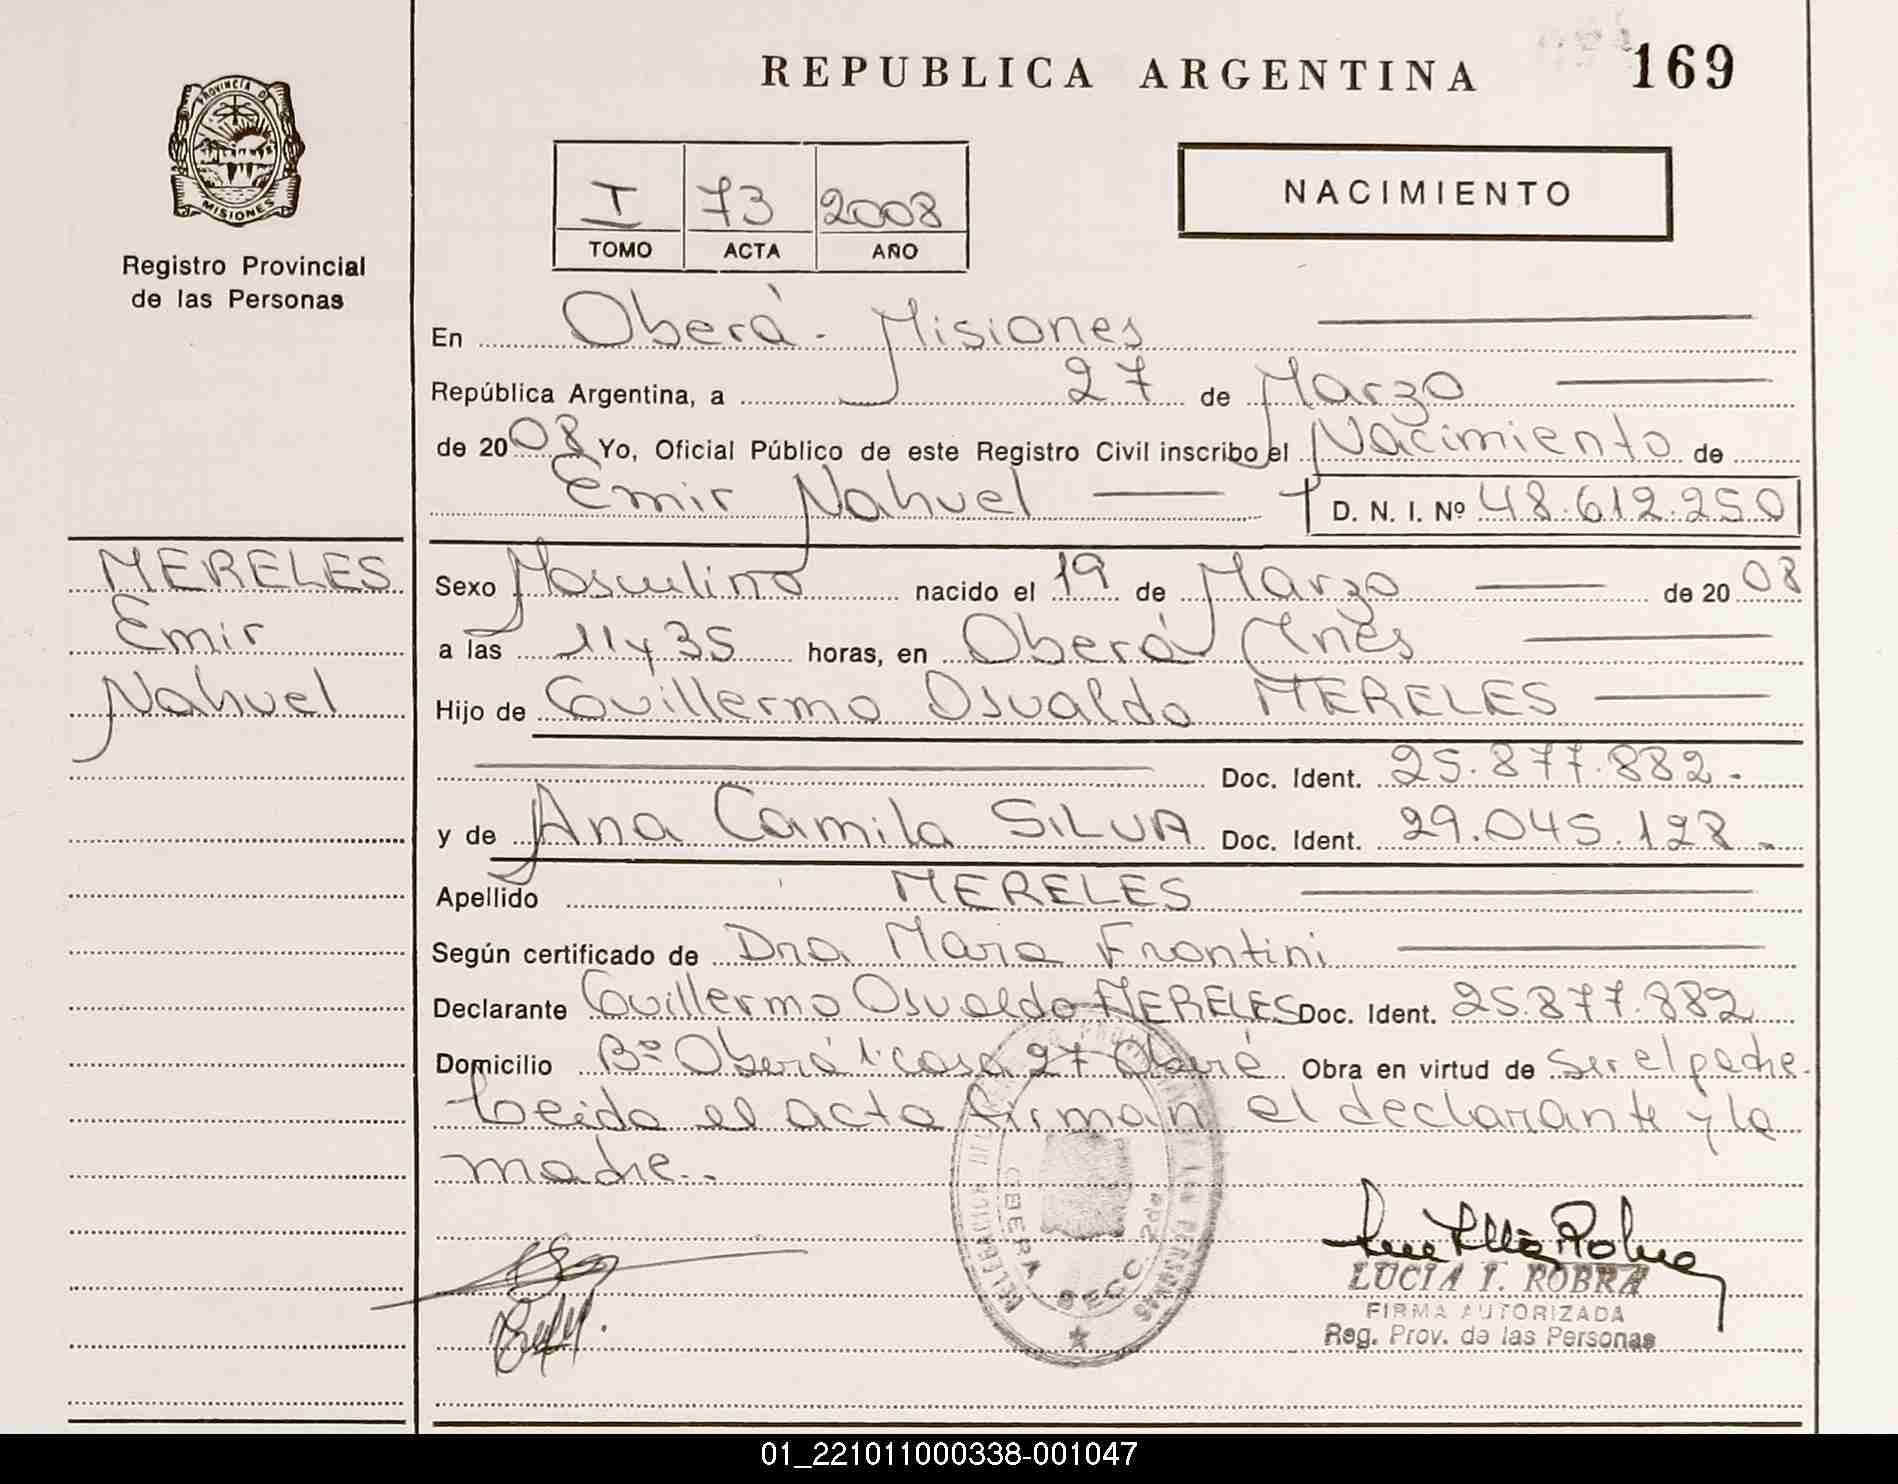 REPUBLICA ARGENTINA
169
PROVINCIA DE
MISIONES
Registro Provincial
de las Personas
I 73 2008
TOMO ACTA AÑO
NACIMIENTO
En Oberá - Misiones
República Argentina, a 27 de Marzo
de 2008 Yo, Oficial Público de este Registro Civil inscribo el Nacimiento de
Emir Nahuel D. N. I. Nº 48.612.250
MERELES
Emir
Nahuel
Sexo Masculino nacido el 19 de Marzo de 2008
a las 11 y 35 horas, en Oberá Mnes
Hijo de Guillermo Osvaldo MERELES
Doc. Ident. 25.877.882.
y de Ana Camila SILVA Doc. Ident. 29.045.128.
Apellido MERELES
Según certificado de Dra Mara Frontini
Declarante Guillermo Osvaldo MERELES Doc. Ident. 25.877.882
Domicilio Bº Oberá 1 casa 27 Oberá Obra en virtud de ser el padre.
Leida el acta firman el declarante y la
madre..
OBERA SECC. 2da
LUCIA I. ROBRA
FIRMA AUTORIZADA
Reg. Prov. de las Personas
01_221011000338-001047